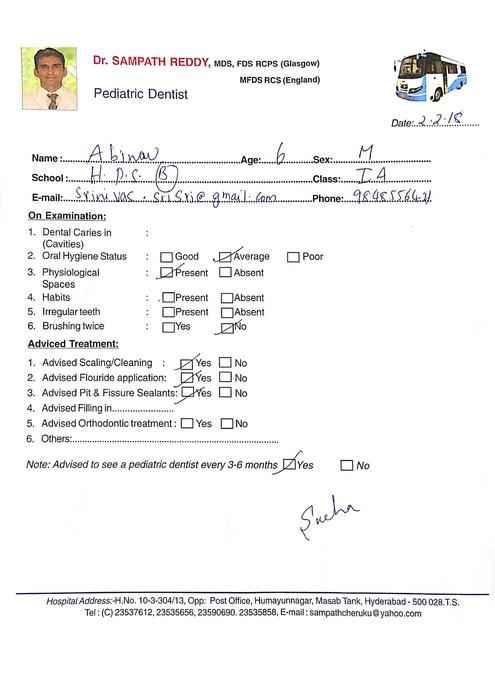 Dr. SAMPATH REDDY, MDS, FDS RCPS (Glasgow)
MFDS RCS (England)
Pediatric Dentist
Date: 2.2.18
Name: Abinav Age: 6 Sex: M
School: H.P.S. (B) Class: I A
E-mail: Srinivas.SriSri@gmail.com Phone:
On Examination:
1. Dental Caries in :
(Cavities)
2. Oral Hygiene Status : Good Average Poor
3. Physiological : Present Absent
Spaces
4. Habits : Present Absent
5. Irregular teeth : Present Absent
6. Brushing twice : Yes No
Adviced Treatment:
1. Advised Scaling/Cleaning : Yes No
2. Advised Flouride application: Yes No
3. Advised Pit & Fissure Sealants: Yes No
4. Advised Filling in......................
5. Advised Orthodontic treatment : Yes No
6. Others:..............................................................
Note: Advised to see a pediatric dentist every 3-6 months Yes No
Hospital Address:-H.No. 10-3-304/13, Opp: Post Office, Humayunnagar, Masab Tank, Hyderabad - 500 028.T.S.
Tel : (C) 23537612, 23535656, 23590690. 23535858, E-mail : sampathcheruku@yahoo.com